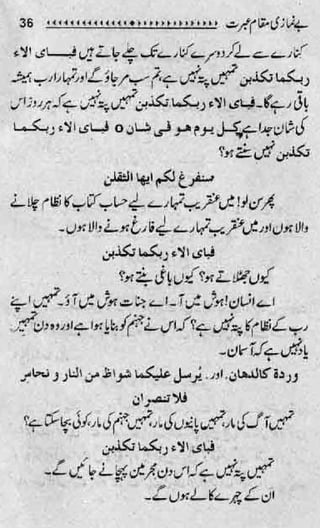 بے نمازی مقام عبرت 36
کنارے سے لے کر دوسرے کنارے تک چلے جاتے ہیں فبای الاء
ربکما تکذبن تمہیں پتہ نہیں ہے، تم سب مر جاؤ گے اور تمہارا رب ہمیشہ
باقی رہے گا۔ فبای الاء ربکما تکذبن تمہیں پتہ نہیں ہے کہ ہر روز اس
کی شان جدا ہے، کل یوم ھو فی شان o فبای الاء ربکما
تکذبن نہیں بنتے ہو؟
سنفرغ لکم ایھا الثقلن
پھر سن لو! میں عنقریب تمہارے لیے حساب کتاب کا نظام چلانے
والا ہوں اور میں عنقریب تمہارے لیے فارغ ہونے والا ہوں۔
فبای الاء ربکما تکذبن
کیوں جھٹلاتے ہو؟ کیوں باغی بنتے ہو؟
اے انسان! ہوش میں آ۔ اے جنات ہوش میں آؤ۔ تمہیں اپنے
رب کے نظام کا پتہ نہیں ہے؟ کہ اس نے جہنم کو بنایا ہوا ہے اور وہ دن تمہیں
یاد نہیں ہے کہ آسمان۔
وردۃ کالدھان، اور، یرسل علیکما شواظ من النار و نحاس
فلا تنصران
تمہیں آگ کی مار، تمہیں پانیوں کی مار، تمہیں جہنم کی مار، کوئی بچا سکتا ہے؟
فبای الاء ربکما تکذبن
تمہیں پتہ نہیں ہے کہ اس دن مجرمین پہچانے جائیں گے۔
ان کے چہرے کالے ہوں گے۔